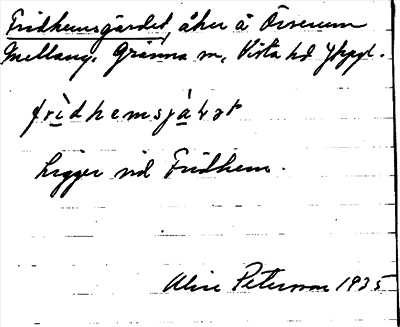 Fridhemsgärdet, åker å Örserum
Mellang. Gränna sn, Vista hd
fridhemsjäḷət
Ligger vid Fridhem.
Alice Peterson 1935